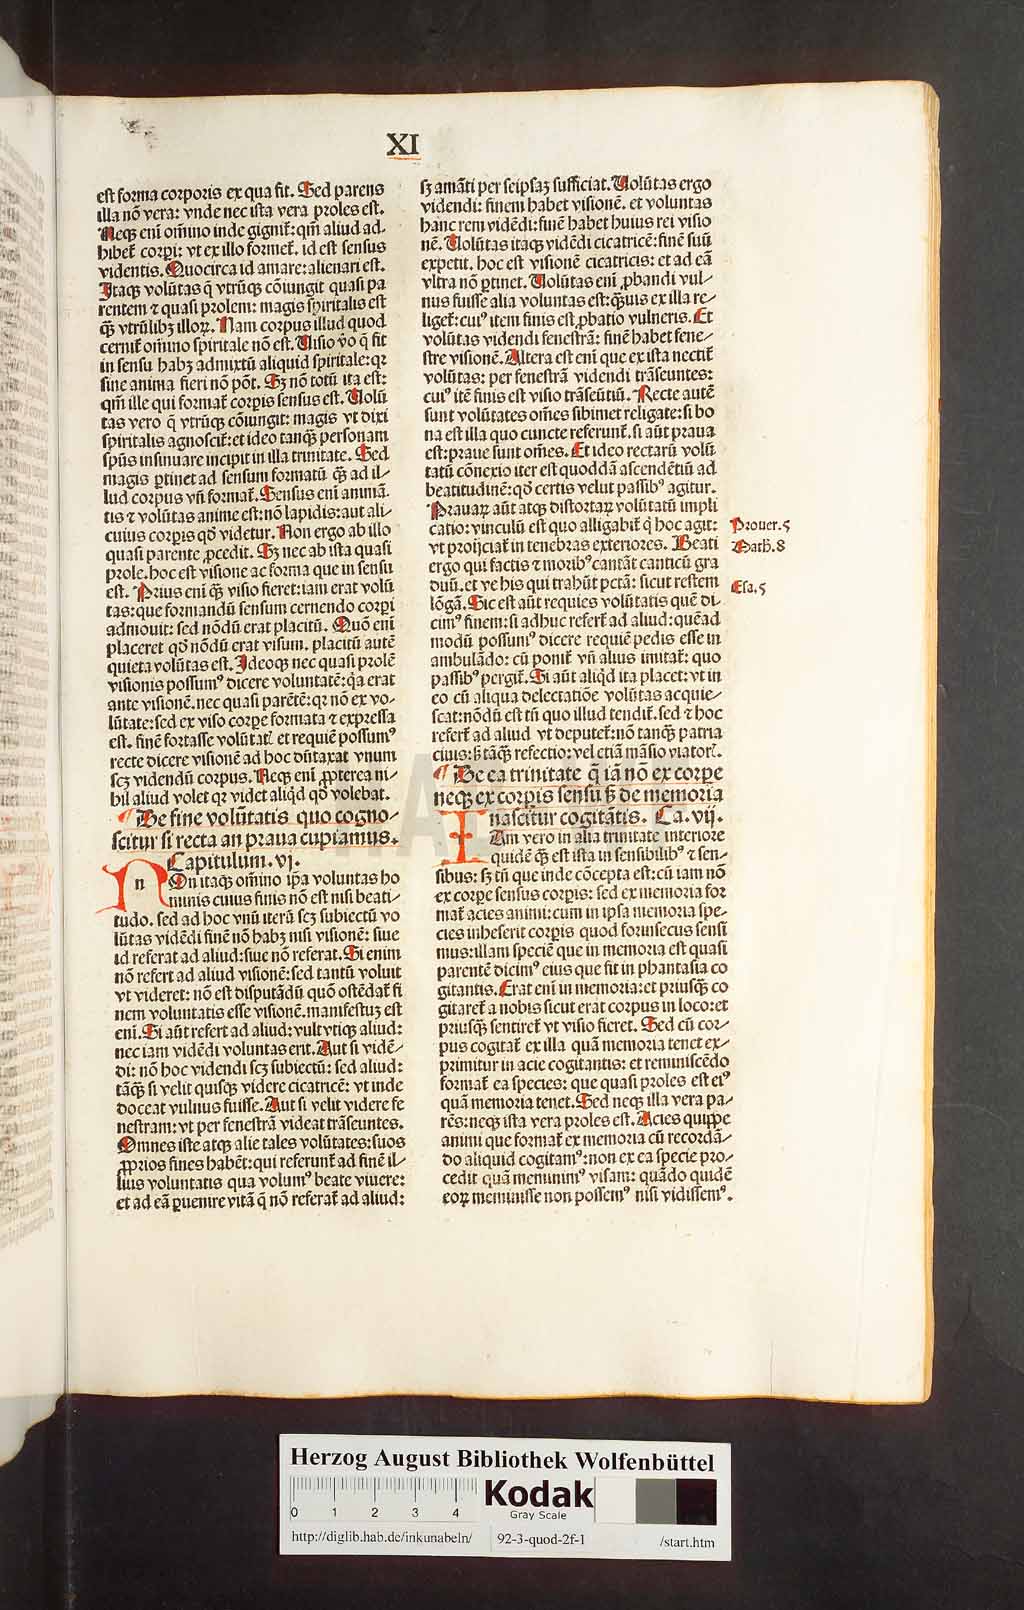 XI
est forma corporis ex qua fit. Sed parens
illa nō vera: vnde nec ista vera proles est.
Neqꝫ eni om̄ino inde gignit᷑: qm̄ aliud ad-
hibet᷑ corpi: vt ex illo formet᷑. id est sensus
videntis. Quocirca id amare: alienari est.
Itaqꝫ volūtas q̄ vtrūqꝫ cōiungit quasi pa
rentem ⁊ quasi prolem: magis spiritalis est
qꝫ̄ vtrūlibꝫ illoꝝ. Nam corpus illud quod
cernit᷑ om̄ino spiritale nō est. Uisio v̊o q̄ fit
in sensu habꝫ admixtū aliquid spiritale: qꝛ
sine anima fieri nō pōt. Sꝫ nō totū ita est:
qm̄ ille qui format᷑ corꝑis sensus est. Uolū
tas vero q̄ vtrūqꝫ cōiungit: magis vt dixi
spiritalis agnoscit᷑: et ideo tanqꝫ̄ personam
spūs insinuare incipit in illa trinitate. Sed
magis ꝑtinet ad sensum formatū qꝫ̄ ad il-
lud corpus vn̄ format᷑. Sensus eni animā.
tis ⁊ volūtas anime est: nō lapidis: aut ali-
cuius corꝑis qd̄ videtur. Non ergo ab illo
quasi parente ꝓcedit. Sꝫ nec ab ista quasi
prole. hoc est visione ac forma que in sensu
est. Prius eni qꝫ̄ visio fieret: iam erat volū
tas: que formandū sensum cernendo corpi
admouit: sed nōdū erat placitū. Quō eni
placeret qd̄ nōdū erat visum. placitū autē
quieta volūtas est. Ideoqꝫ nec quasi prolē
visionis possumꝰ dicere voluntatē: q̄a erat
ante visionē. nec quasi parētē: qꝛ nō ex vo-
lūtate: sed ex viso corꝑe formata ⁊ expressa
est. finē fortasse volūtat᷑. et requiē possumꝰ
recte dicere visionē ad hoc dūtaxat vnum
scꝫ videndū corpus. Neqꝫ eni ꝓpterea ni-
hil aliud volet qꝛ videt aliqd̄ qd̄ volebat.
¶ De fine volūtatis quo cogno-
scitur si recta an praua cupiamus.
Capitulum. vj.
n
On itaqꝫ om̄ino ip̄a voluntas ho
minis cuius finis nō est nisi beati-
tudo. sed ad hoc vnū iterū scꝫ subiectū vo
lūtas vidēdi finē nō habꝫ nisi visionē: siue
id referat ad aliud: siue nō referat. Si enim
nō refert ad aliud visionē: sed tantū voluit
vt videret: nō est disputādū quō ostēdat᷑ fi
nem voluntatis esse visionē. manifestuꝫ est
eni. Si aūt refert ad aliud: vult vtiqꝫ aliud:
nec iam vidēdi voluntas erit. Aut si vidē-
di: nō hoc videndi scꝫ subiectū: sed aliud:
tāqꝫ̄ si velit quisqꝫ videre cicatricē: vt inde
doceat vulnus fuisse. Aut si velit videre fe
nestram: vt per fenestrā videat trāseuntes.
Omnes iste atqꝫ alie tales volūtates: suos
ꝓprios fines habēt: qui referunt᷑ ad finē il-
lius voluntatis qua volumꝰ beate viuere:
et ad eā ꝑuenire vitā q̄ nō referat᷑ ad aliud:
sꝫ amāti per seipsaꝫ sufficiat. Uolūtas ergo
videndi: finem habet visionē. et voluntas
hanc rem vidēdi: finē habet huius rei visio
nē. Uolūtas itaqꝫ vidēdi cicatricē: finē suū
expetit. hoc est visionē cicatricis: et ad eā
vltra nō ꝑtinet. Uolūtas eni ꝓbandi vul-
nus fuisse alia voluntas est: qꝫ̄uis ex illa re-
liget᷑: cuiꝰ item finis est ꝓbatio vulneris. Et
volūtas videndi fenestrā: finē habet fene-
stre visionē. Altera est eni que ex ista nectit᷑
volūtas: per fenestrā videndi trāseuntes:
cuiꝰ itē finis est visio trāseūtiū. Recte autē
sunt volūtates om̄es sibimet religate: si bo
na est illa quo cuncte referunt᷑. si aūt praua
est: praue sunt om̄es. Et ideo rectarū volū
tatū cōnexio iter est quoddā ascendētiū ad
beatitudinē: qd̄ certis velut passibꝰ agitur.
Prauaꝝ aūt atqꝫ distortaꝝ volūtatū impli
catio: vinculū est quo alligabit᷑ q̇ hoc agit:
vt proijciat᷑ in tenebras exteriores. Beati
ergo qui factis ⁊ moribꝰ cantāt canticū gra
duū. et ve his qui trahūt pctā: sicut restem
lōgā. Sic est aūt requies volūtatis quē di-
cimꝰ finem: si adhuc refert᷑ ad aliud: quēad
modū possumꝰ dicere requiē pedis esse in
ambulādo: cū ponit᷑ vn̄ alius imitat᷑: quo
passibꝰ pergit᷑. Si aūt aliqd̄ ita placet: vt in
eo cū aliqua delectatiōe volūtas acquie-
scat: nōdū est tn̄ quo illud tendit᷑. sed ⁊ hoc
refert᷑ ad aliud vt deputet᷑: nō tanqꝫ̄ patria
ciuis: sꝫ tāqꝫ̄ refectio: vel etiā māsio viator᷑.
¶ De ea trinitate q̄ iā nō ex corꝑe
neqꝫ ex corꝑis sensu sꝫ de memoria
nascitur cogitātis. Ca. vij.
I
Am vero in alia trinitate interiore
quidē qꝫ̄ est ista in sensibilibꝰ ⁊ sen-
sibus: sꝫ tn̄ que inde cōcepta est: cū iam nō
ex corꝑe sensus corꝑis: sed ex memoria for
mat᷑ acies animi: cum in ipsa memoria spe-
cies inheserit corꝑis quod forinsecus sensi
mus: illam speciē que in memoria est quasi
parentē dicimꝰ eius que fit in phantasia co
gitantis. Erat eni in memoria: et priusqꝫ̄ co
gitaret᷑ a nobis sicut erat corpus in loco: et
priusqꝫ̄ sentiret᷑ vt visio fieret. Sed cū cor-
pus cogitat᷑ ex illa quā memoria tenet ex-
primitur in acie cogitantis: et reminiscēdo
format᷑ ea species: que quasi proles est eiꝰ
quā memoria tenet. Sed neqꝫ illa vera pa-
rēs: neqꝫ ista vera proles est. Acies quippe
animi que format᷑ ex memoria cū recordā-
do aliquid cogitamꝰ: non ex ea specie pro-
cedit quā meminimꝰ visam: quādo quidē
eoꝝ meminisse non possemꝰ nisi vidissemꝰ.
Prouer. 5
Math. 8
Esa. 5
Herzog August Bibliothek Wolfenbüttel
0 1 2 3 4
Kodak
Gray Scale
http://diglib.hab.de/inkunabeln/ 92-3-quod-2f-1 /start.htm